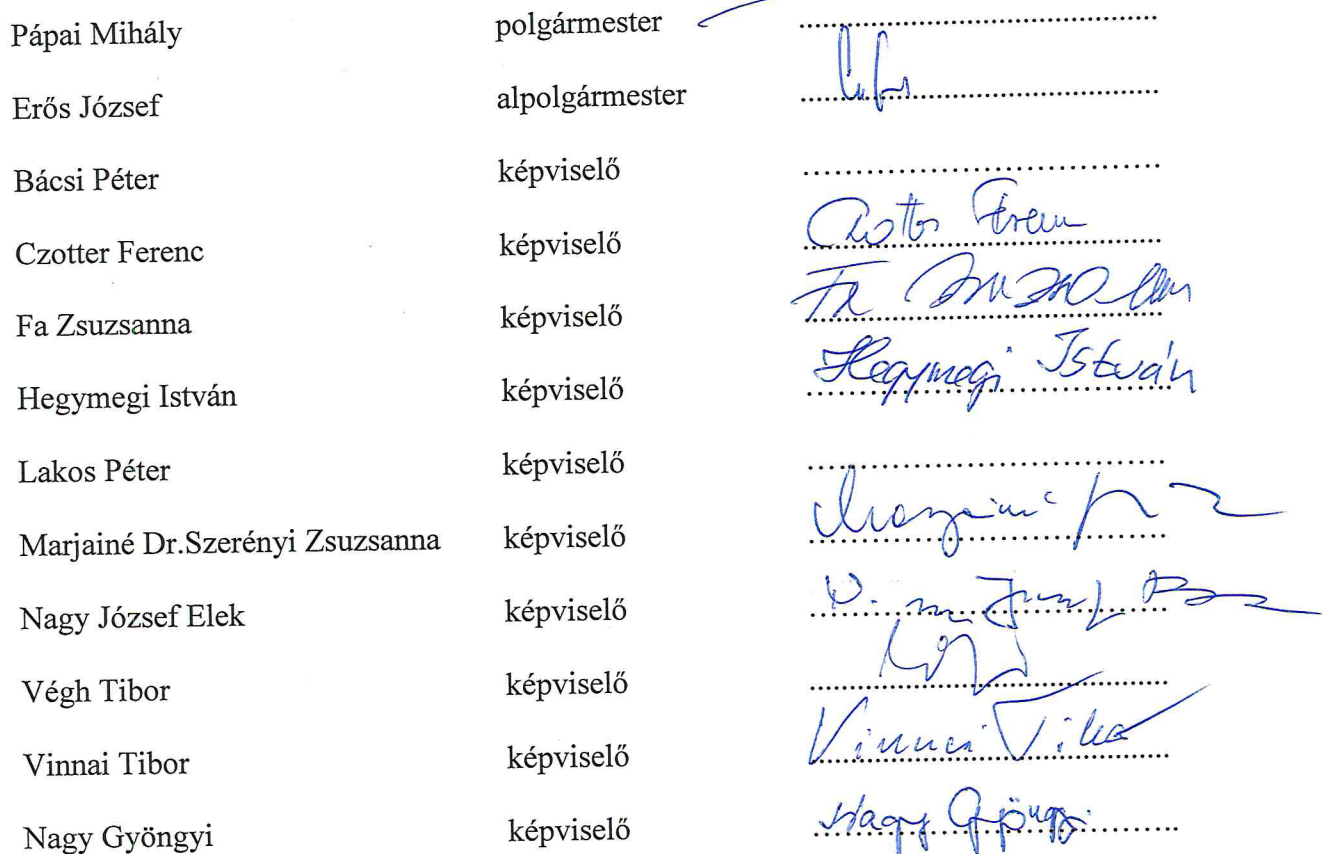 Pápai Mihály polgármester ........................................
Erős József alpolgármester ........................................
Bácsi Péter képviselő ........................................
Czotter Ferenc képviselő ........................................
Fa Zsuzsanna képviselő Fa ........................................
Hegymegi István képviselő Hegymegi István
Lakos Péter képviselő ........................................
Marjainé Dr.Szerényi Zsuzsanna képviselő ........................................
Nagy József Elek képviselő ........................................
Végh Tibor képviselő ........................................
Vinnai Tibor képviselő Vinnai Tibor
Nagy Gyöngyi képviselő Nagy Gyöngyi